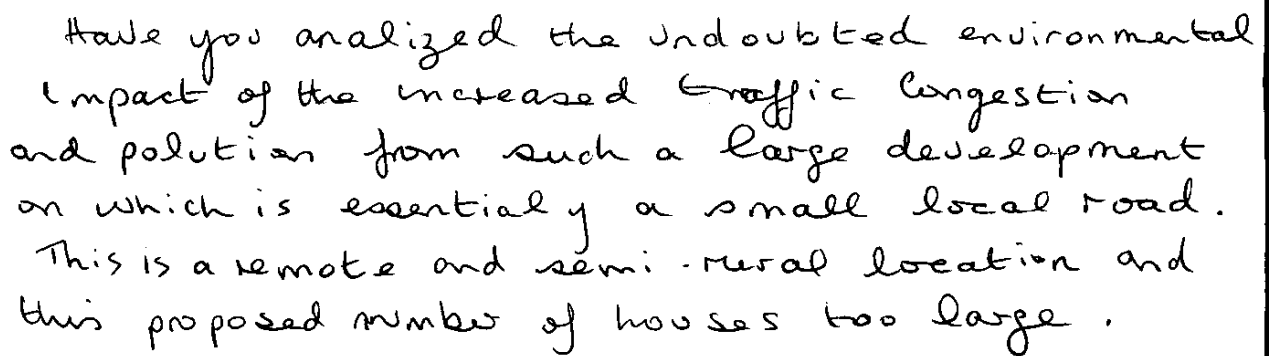 Have you analized the undoubted environmental
impact of the increased traffic congestion
and polution from such a large development
on which is essentialy a small local road.
This is a remote and semi-rural location and
this proposed number of houses too large.